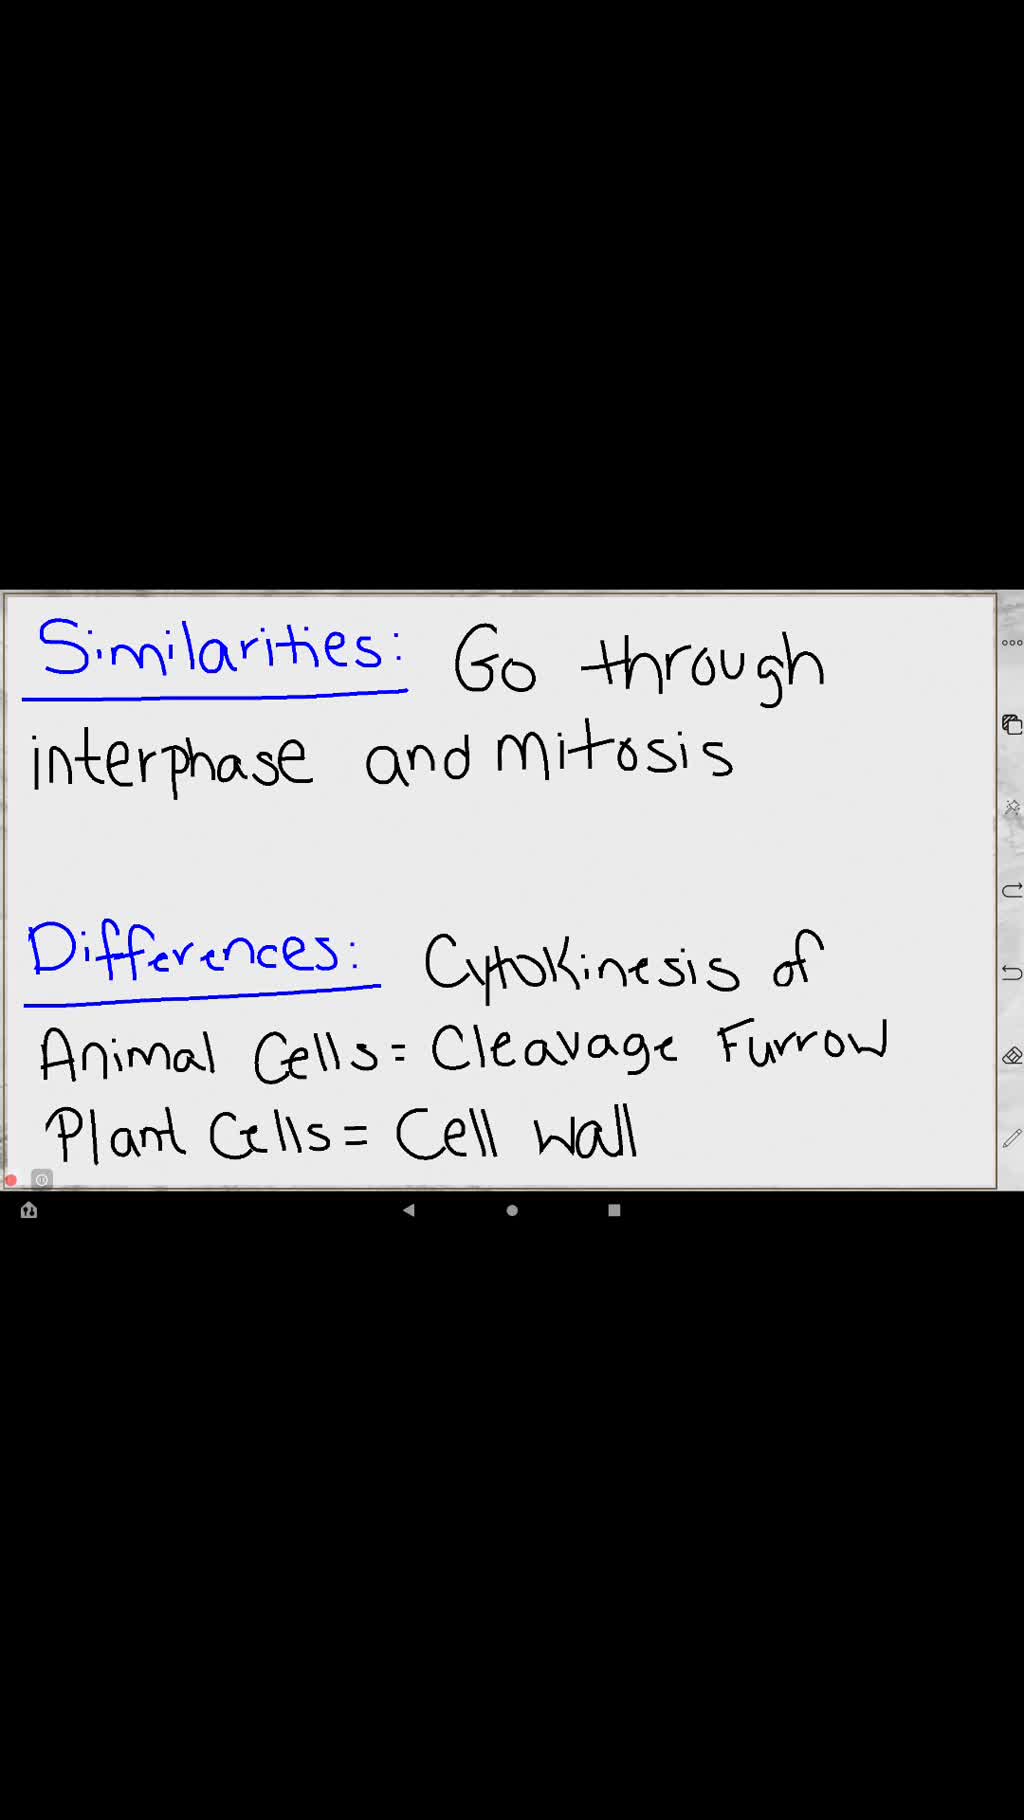 Similarities: Go through
interphase and mitosis
Differences: Cytokinesis of
Animal Cells = Cleavage Furrow
Plant Cells = Cell wall